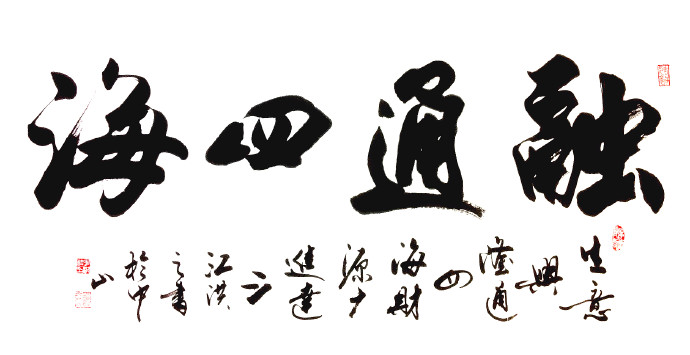 融通四海
生意興隆通四海財源广進達三江洪之書於中山